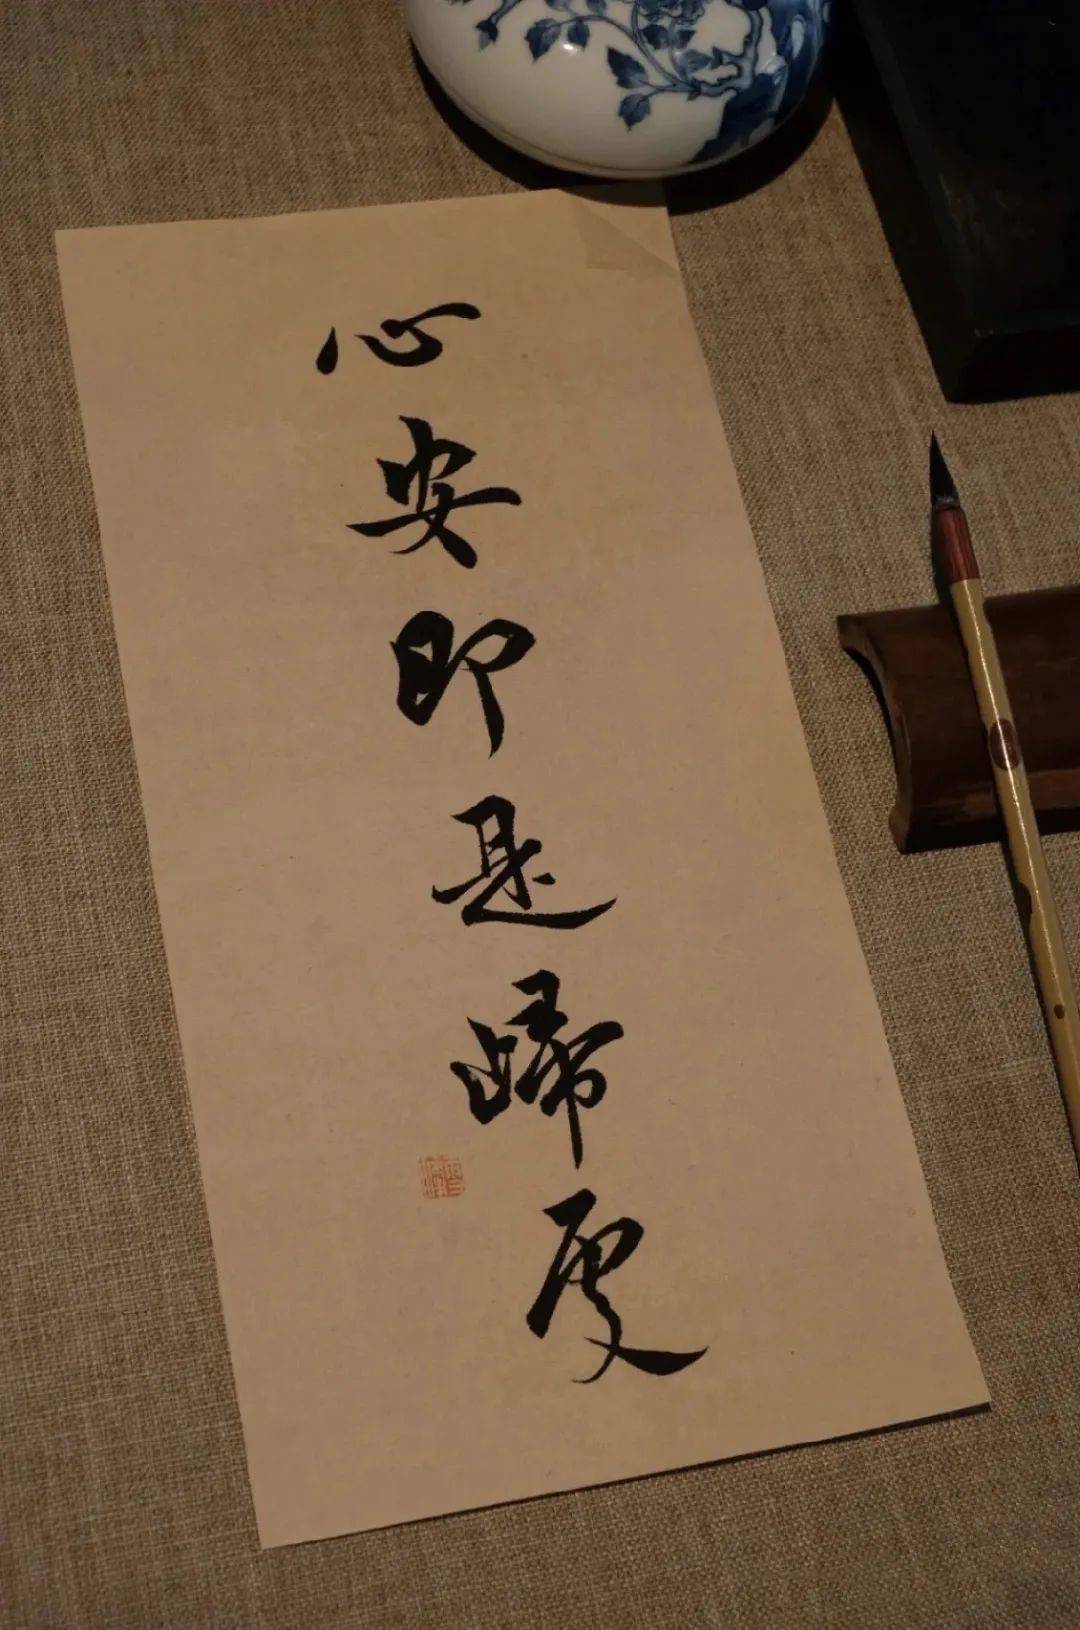 心安即是歸處